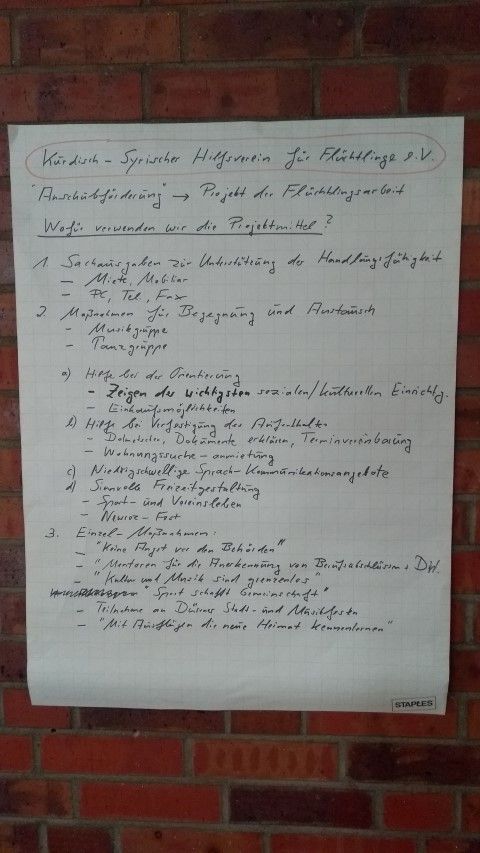 Kurdisch - Syrischer Hilfsverein für Flüchtlinge e.V.
"Anschubförderung" → Projekt der Flüchtlingsarbeit
Wofür verwenden wir die Projektmittel?
1. Sachausgaben zur Unterstützung der Handlungsfähigkeit
- Miete, Mobiliar
- PC, Tel, Fax
2. Maßnahmen für Begegnung und Austausch
- Musikgruppe
- Tanzgruppe
a) Hilfe bei der Orientierung
- Zeigen der wichtigsten sozialen/kulturellen Einrichtg.
- Einkaufsmöglichkeiten
b) Hilfe bei Verfestigung des Aufenthaltes
- Dolmetscher, Dokumente erklären, Terminvereinbarung
- Wohnungssuche - anmietung
c) Niedrigschwellige Sprach-Kommunikationsangebote
d) Sinnvolle Freizeitgestaltung
- Sport- und Vereinsleben
- Newroz-Fest
3. Einzel-Maßnahmen:
- "Keine Angst vor den Behörden"
- "Mentoren für die Anerkennung von Berufsabschlüssen
- "Kultur und Musik sind grenzenlos"
"Sport schafft Gemeinschaft"
- Teilnahme an Dürener Stadt- und Musikfesten
- "Mit Ausflügen die neue Heimat kennenlernen"
STAPLES